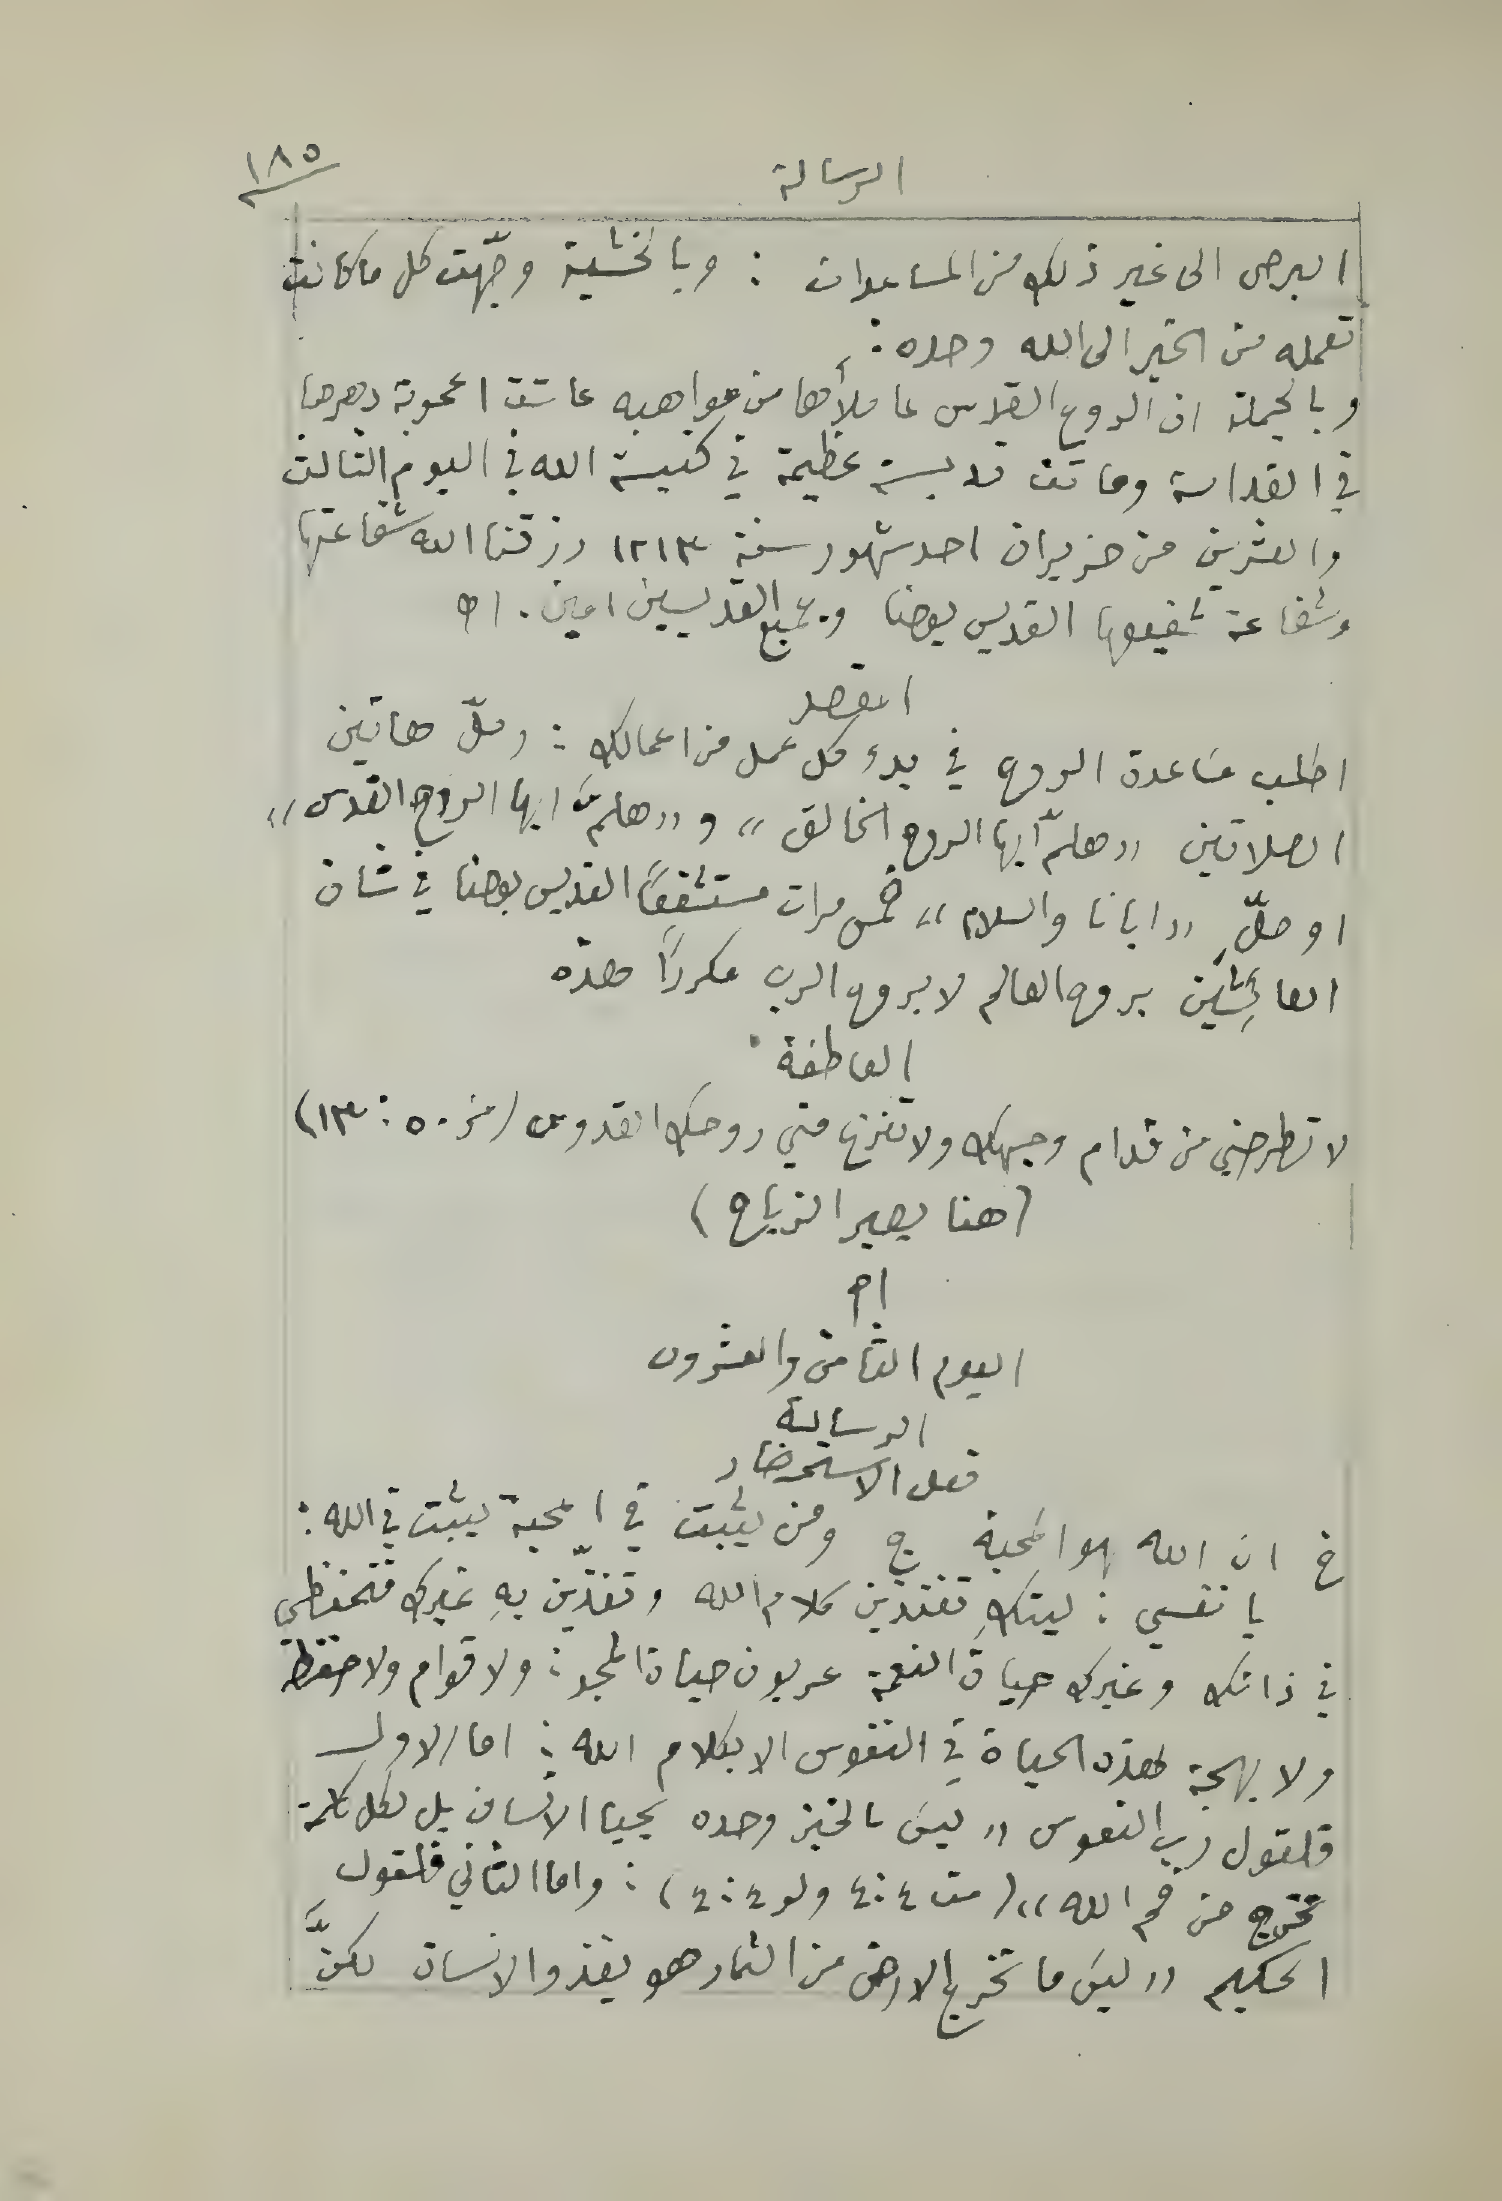 الرسالة ١٨٥
البرص الى غير ذلك من المساعدات : وبالخشية وجّهت كل ما كانت
تعمله من الخير الى الله وحده :
وبالجملة ان الروح القدس عا ملأها من مواهبه عاشت اعجوبة دهرها
في القداسة وماتت قديسة عظيمة في كنيسة الله في اليوم الثالث
والعشرين من حزيران احد شهور سنة ١٢١٣ رزقنا الله شفاعتها
وشفاعة شفيعها القديس يوحنا وجميع القديسين امين . اه
المقصد
اطلب مساعدة الروح في بدء كل عمل من اعمالك : وصلّ هاتين
الصلاتين „ هلمّ ايها الروح الخالق „ و „ هلمّ ايها الروح القدس „
او صلّ „ ابانا والسلام „ خمس مرات مستشفعًا القديس يوحنا في شان
العائشين بروح العالم لا بروح الرب مكررًا هذه
العاطفة
لا تطرحني من قدام وجهك ولا تنزع مني روحك القدوس (مز ٥٠ : ١٣)
(هنا يصير الزياح)
اه
اليوم الثامن والعشرون
الرسالة
فعل الاستحضار
خ ان الله هو المحبة ج ومن يثبت في المحبة يثبت في الله :
يا نفسي : ليتكِ تغتذين كلام الله وتغذّين بهِ غيرك فتحفظي
في ذاتك وغيرك حياة النعمة عربون حياة المجد : ولا قوام ولا حفظ
ولا بهجة لهذه الحياة في النفوس الا بكلام الله : اما الاول
فلقول رب النفوس „ ليس بالخبز وحده يحيا الانسان بل بكل كلمة
تخرج من فم الله „ (مت ٤ : ٤ ولو ٤ : ٤) : واما الثاني فلقول
الحكيم „ ليس ما تخرج الارض من الثمار هو يغذو الانسان لكنَّ